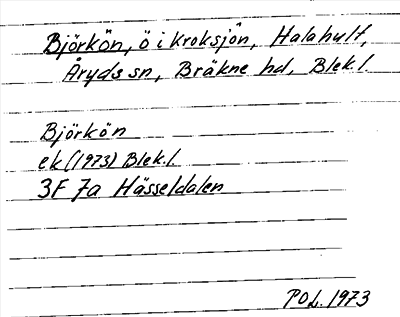 Björkön, ö i Kroksjön, Halahult,
Åryds sn, Bräkne hd, Blek.l.
Björkön
ek (1973) Blek.l.
3F 7a Hässeldalen
POL. 1973